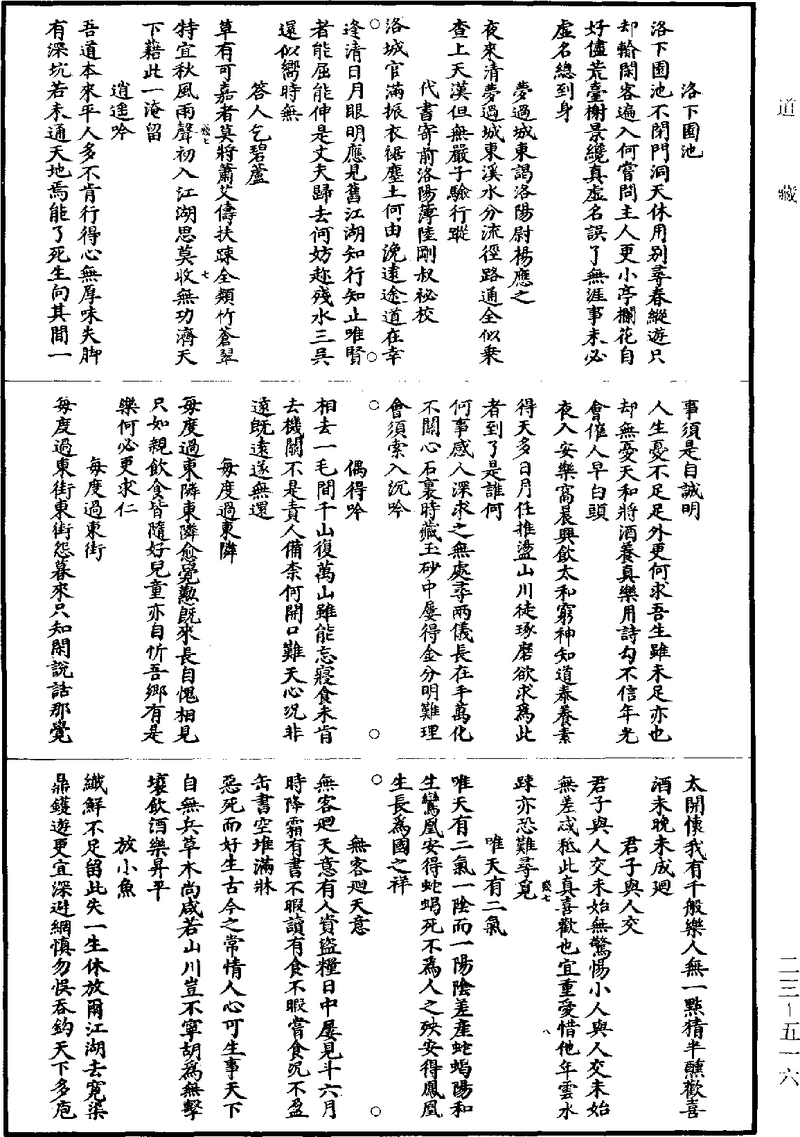 道藏
洛下園池
洛下園池不閉門洞天休用別尋春縱遊只
却輸閑客遍入何嘗問主人更小亭欄花自
好儘荒臺榭景纔真虛名誤了無涯事未必
虛名總到身
夢過城東謁洛陽尉楊應之
夜來清夢過城東溪水分流徑路通全似乘
查上天漢但無嚴子驗行蹤
代書寄前洛陽薄陸剛叔祕校
洛城官滿振衣裾塵土何由浼遠途道在幸
逢清日月眼明應見舊江湖知行知止唯賢
者能屈能伸是丈夫歸去何妨趂殘水三吳
還似嚮時無
答人乞碧蘆
草有可嘉者莫將蕭艾儔扶踈全類竹蒼翠
特宜秋風雨聲初入江湖思莫收無功濟天
下藉此一淹留
逍遙吟
吾道本來平人多不肯行得心無厚味失脚
有深坑若未通天地焉能了死生向其間一
事須是自誠明
人生憂不足足外更何求吾生雖未足亦也
却無憂天和將酒養真樂用詩勾不信年光
會催人早白頭
夜入安樂窩晨興飲太和窮神知道泰養素
得天多日月任推盪山川徒琢磨欲求爲此
者到了是誰何
何事感人深求之無處尋兩儀長在手萬化
不關心石裏時藏玉砂中屢得金分明難理
會須索入沉吟
偶得吟
相去一毛間千山復萬山雖能忘寢食未肯
去機關不是責人備柰何開口難天心況非
遠既遠遂無還
每度過東隣
每度過東隣東隣愈覺懃既來長自愧相見
只如親飲食皆隨好兒童亦自忻吾鄉有是
樂何必更求仁
每度過東街
每度過東街東街怨暮來只知閑說話那覺
太開懷我有千般樂人無一點猜半醺歡喜
酒未晚未成廻
君子與人交
君子與人交未始無驚惕小人與人交未始
無差忒秪此真喜歡也宜重愛惜他年雲水
踈亦恐難尋覓
唯天有二氣
唯天有二氣一陰而一陽陰差產蛇蝎陽和
生鸞凰安得蛇蝎死不爲人之殃安得鳳凰
生長爲國之祥
無客廻天意
無客廻天意有人資盜糧日中屢見斗六月
時降霜有書不暇讀有食不暇嘗食況不盈
缶書空堆滿牀
惡死而好生古今之常情人心可生事天下
自無兵草木尚咸若山川豈不寧胡爲無擊
壤飲酒樂昇平
放小魚
纎鮮不足留此失一生休放爾江湖去寬渠
鼎鑊遊更宜深避網慎勿悞吞鈎天下多庖
二三－五一六